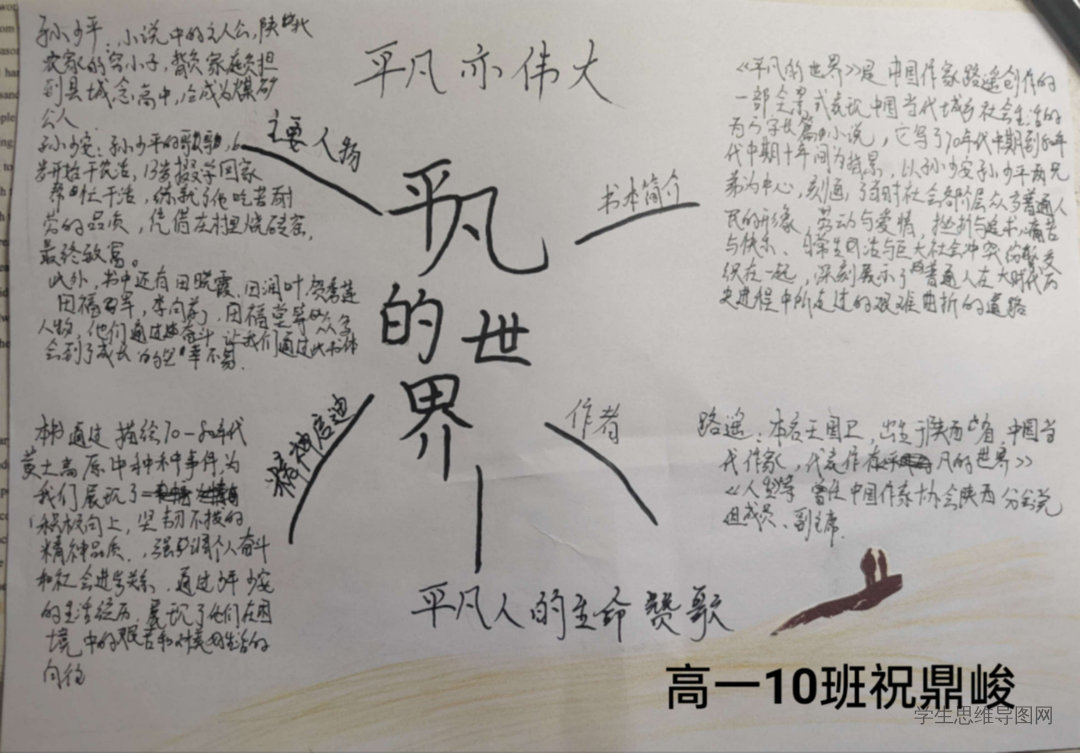 平凡亦伟大
平凡
的世
界
主要人物
孙少平:小说中的主人公,陕北
农家的穷小子,背负家庭负担
到县城念高中,后成为煤矿
公人
孙少安:孙少平的哥哥,6
岁开始干农活,13岁辍学回家
帮忙干活,练就了他吃苦耐
劳的品质,凭借在村里烧砖窑,
最终致富。
此外,书中还有田晓霞、田润叶、贺秀莲
田福军,李向前,田福堂等众多
人物,他们通过奋斗,让我们通过此书体
会到了成长的幸不易.
书本简介
《平凡的世界》是中国作家路遥创作的
一部全景式表现中国当代城乡社会生活的
百万字长篇小说,它写了70年代中期到80年
代中期十年间为背景,以孙少安孙少平两兄
弟为中心,刻画了当时社会各阶层众多普通人
民的形象、劳动与爱情,挫折与追求,痛苦
与快乐、日常生活与巨大社会冲突纷繁交
织在一起,深刻展示了普通人在大时代历
史进程中所走过的艰难曲折的道路
精神
本书通过描绘70-80年代
黄土高原中种种事件,为
我们展现了
积极向上,坚韧不拔的
精神品质.,强调个人奋斗
和社会进步关系,通过少平少安
的生活经历,展现了他们在困
境中的艰苦和对美好生活的
向往
作者
路遥:本名王国卫,出生于陕西省,中国当
代作家,代表作有凡的世界》
《人生》等 曾任中国作家协会陕西分会党
组成员、副主席.
平凡人的生命赞歌
高一10班祝鼎峻
学生思维导图网